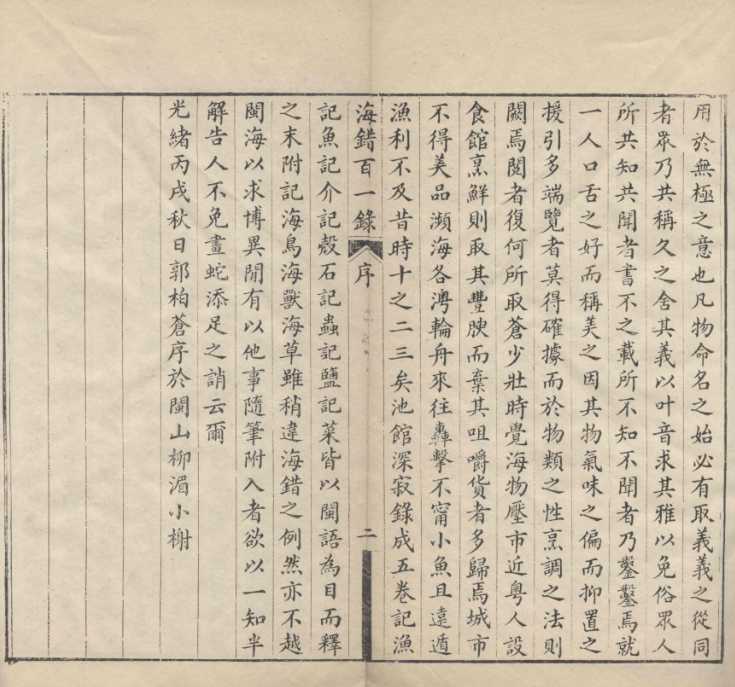 用於無極之意也凡物命名之始必有取義義之從同
者眾乃共稱久之舍其義以叶音求其雅以免俗眾人
所共知共聞者書不之載所不知不聞者乃鑿鑿焉就
一人口舌之好而稱美之因其物氣味之偏而抑置之
援引多端覽者莫得確據而於物類之性烹調之法則
闕焉閱者復何所取蒼少壯時覺海物壓市近粵人設
食館烹鮮則取其豐腴而棄其咀嚼貨者多歸焉城市
不得美品瀕海各灣輪舟來往轟擊不甯小魚且遠遁
漁利不及昔時十之二三矣池館深寂錄成五卷記漁
海錯百一錄 序 二
記魚記介記殼石記蟲記鹽記菜皆以閩語為目而釋
之末附記海鳥海獸海草雖稍違海錯之例然亦不越
閩海以求博異閒有以他事隨筆附入者欲以一知半
解告人不免畫蛇添足之誚云爾
光緒丙戌秋日郭柏蒼序於閩山柳湄小榭